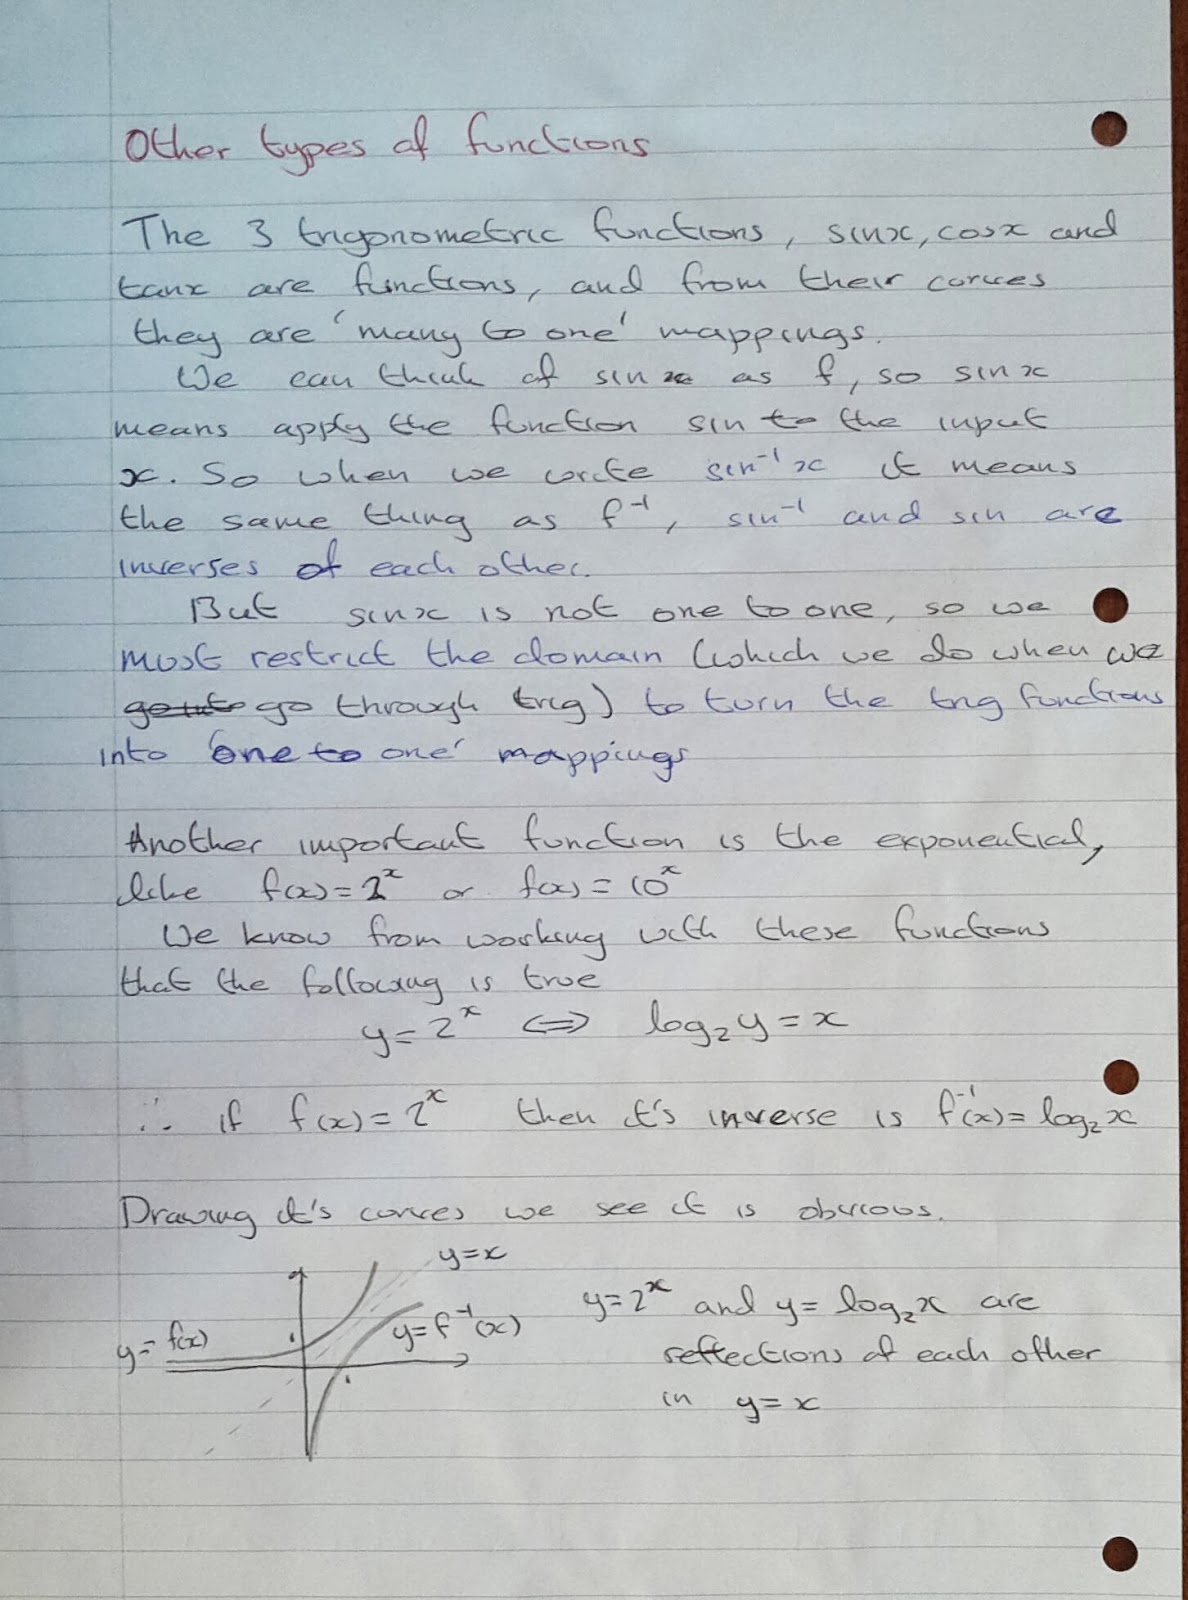 Other types of functions
The 3 trigonometric functions, sinx, cosx and
tanx are functions, and from their curves
they are 'many to one' mappings.
We can think of sin x as f, so sin x
means apply the function sin to the input
x. So when we write sin⁻¹x it means
the same thing as f⁻¹, sin⁻¹ and sin are
inverses of each other.
But sinx is not one to one, so we
must restrict the domain (which we do when we
go through trig) to turn the trig functions
into 'one to one' mappings
Another important function is the exponential,
like f(x) = 2ˣ or f(x) = 10ˣ
We know from working with these functions
that the following is true
y = 2ˣ ⇔ log₂y = x
∴ if f(x) = 2ˣ then it's inverse is f⁻¹(x) = log₂x
Drawing it's curves we see it is obvious.
y = x
y = f(x)
y = f⁻¹(x)
y = 2ˣ and y = log₂x are
reflections of each other
in y = x